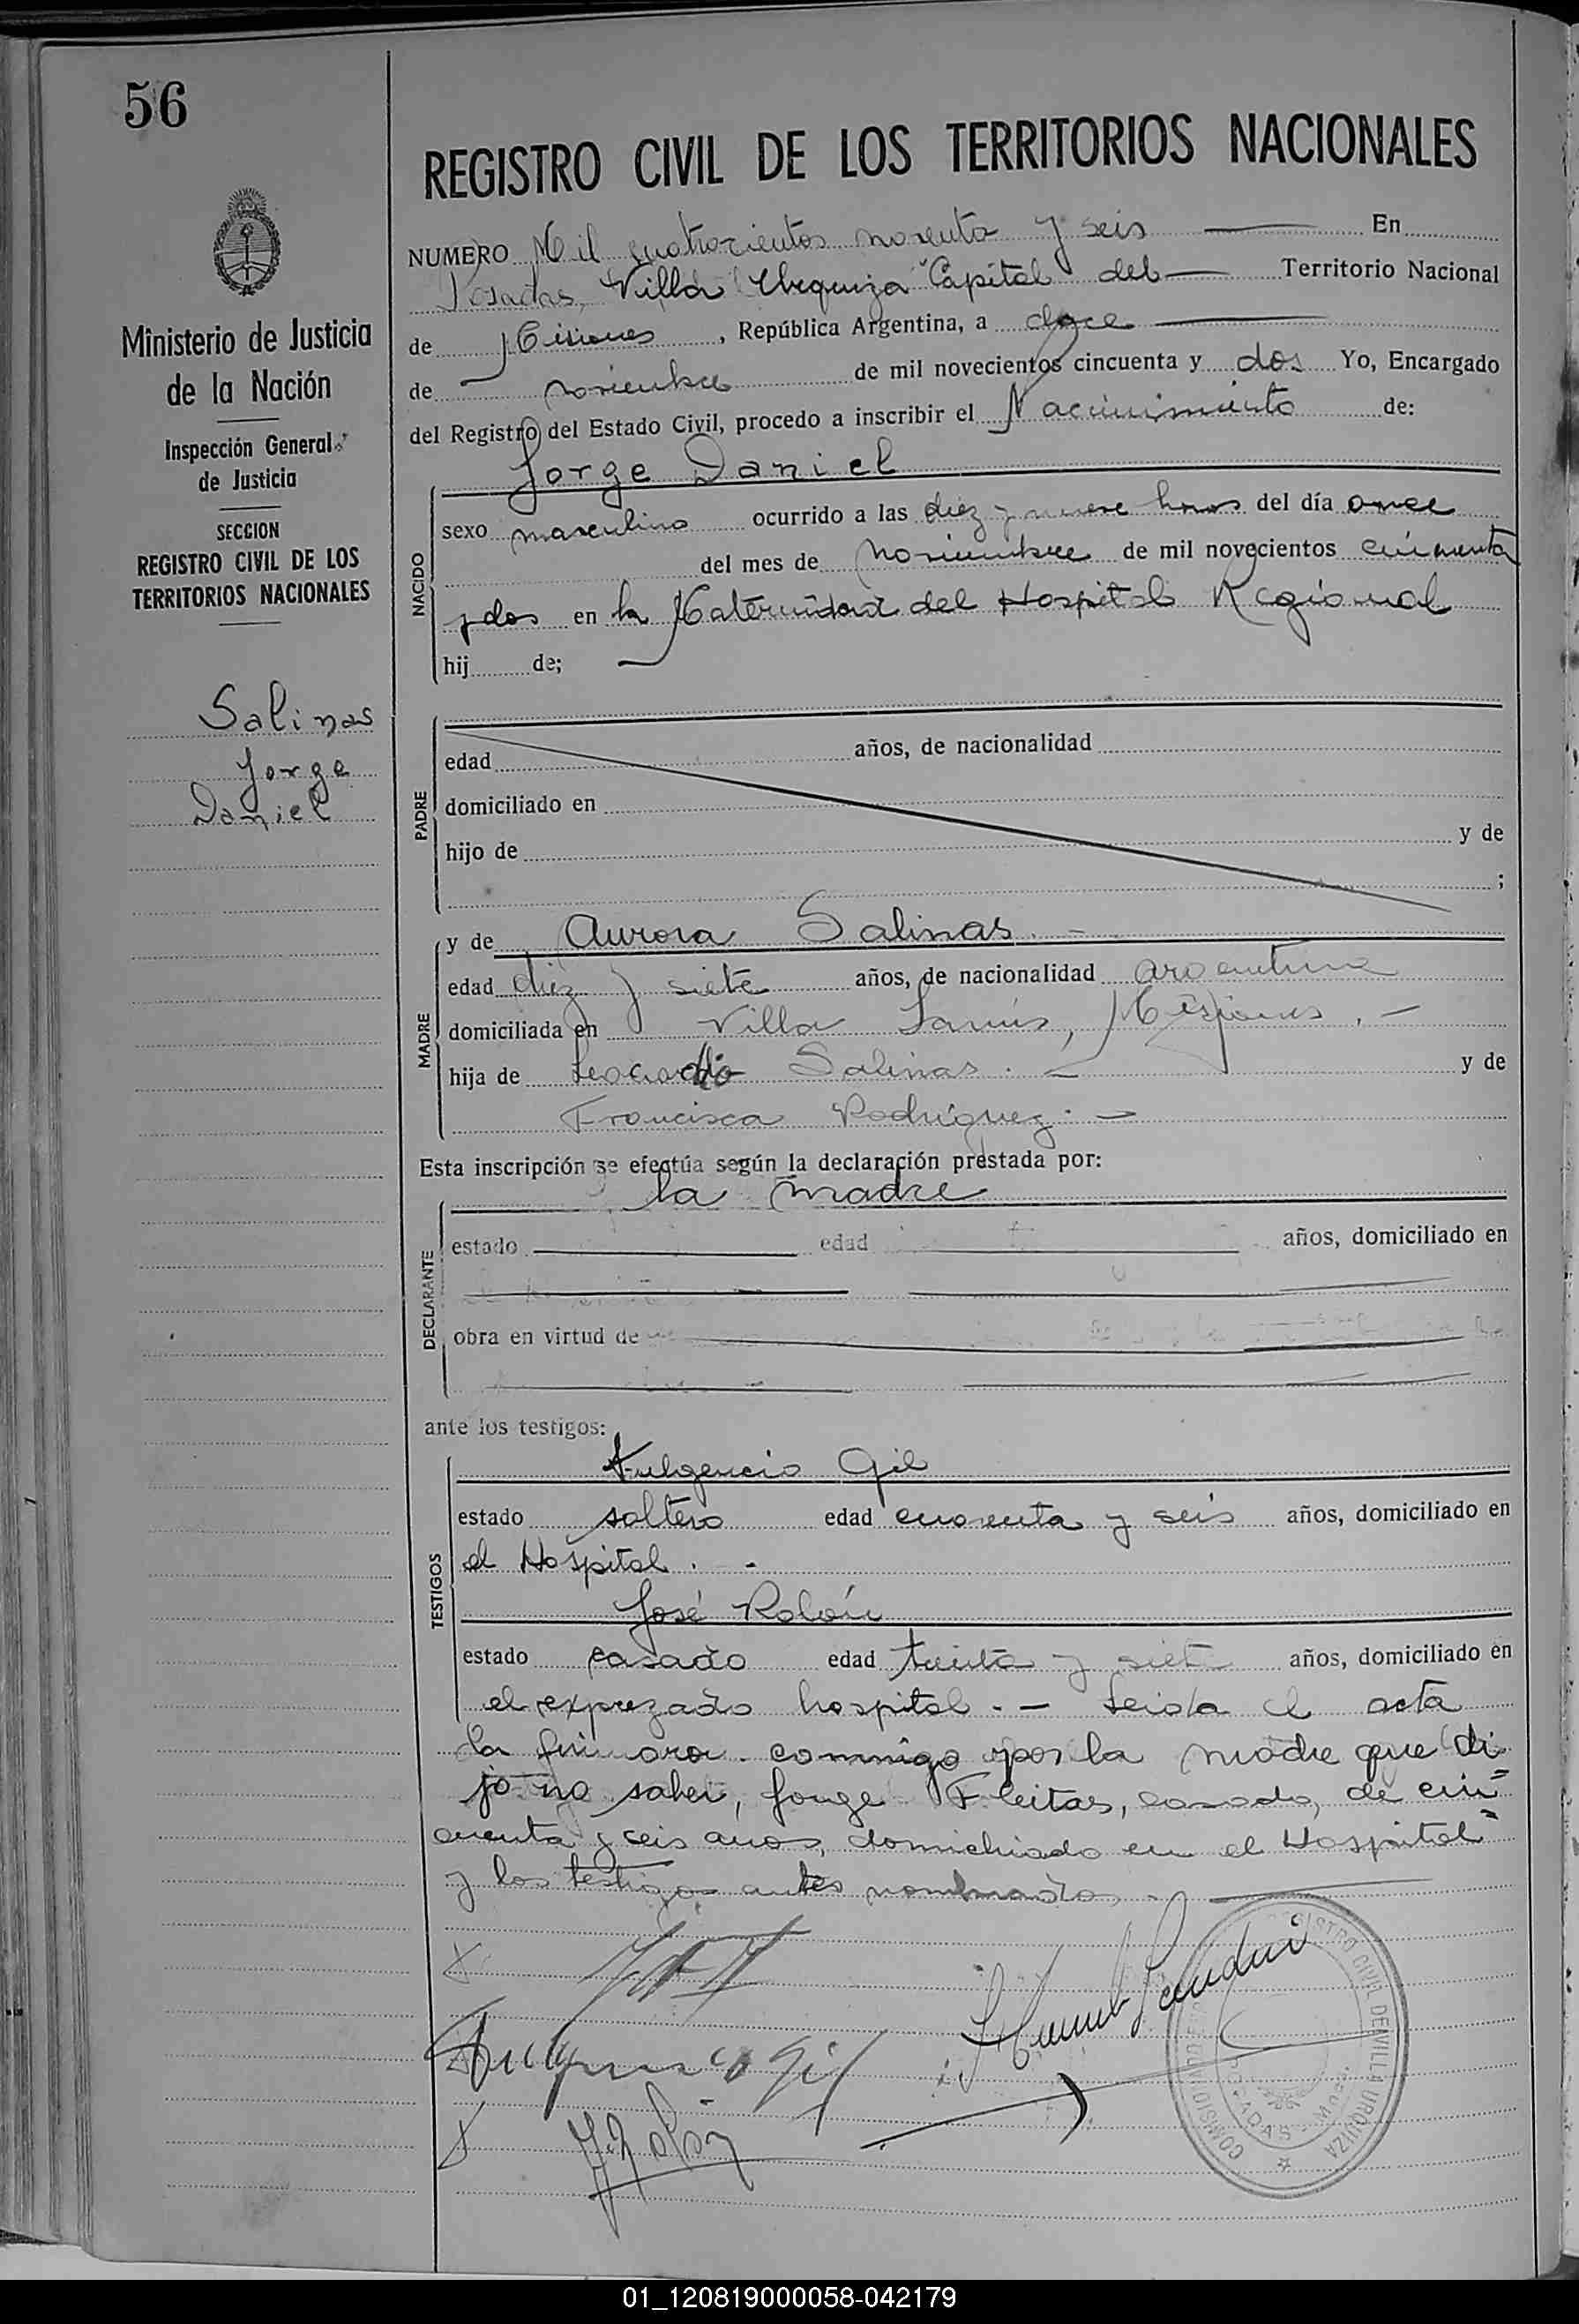 56
REGISTRO CIVIL DE LOS TERRITORIOS NACIONALES
Ministerio de Justicia
de la Nación
Inspección General
de Justicia
SECCION
REGISTRO CIVIL DE LOS
TERRITORIOS NACIONALES
Salinas
Jorge
Daniel
NUMERO Mil cuatrocientos noventa y seis En
Posadas, Villa Urquiza Capital del Territorio Nacional
de Misiones, República Argentina, a doce
de noviembre de mil novecientos cincuenta y dos Yo, Encargado
del Registro del Estado Civil, procedo a inscribir el Nacimiento de:
Jorge Daniel
NACIDO
sexo masculino ocurrido a las diez y nueve horas del día once
del mes de noviembre de mil novecientos cincuenta
y dos en la Maternidad del Hospital Regional
hij de;
PADRE
edad años, de nacionalidad
domiciliado en
hijo de y de
;
MADRE
y de Aurora Salinas.-
edad diez y siete años, de nacionalidad argentina
domiciliada en Villa Lanús, Misiones.-
hija de Salinas.- y de
Francisca Rodríguez.-
Esta inscripción se efectúa según la declaración prestada por:
la madre
DECLARANTE
estado edad años, domiciliado en
obra en virtud de
ante los testigos:
TESTIGOS
Fulgencio Gil
estado soltero edad cuarenta y seis años, domiciliado en
el Hospital.-
José Rolón
estado casado edad treinta y siete años, domiciliado en
el exprezado hospital.- Leida el acta
la firmaron conmigo por la madre que di-
jo no saber, Jorge Fleitas, casado, de cin=
cuenta y seis años, domiciliado en el Hospital=
y los testigos antes nombrados.-
Fulgencio Gil
J. Rolón
REGISTRO CIVIL DE VILLA URQUIZA
POSADAS
01_120819000058-042179